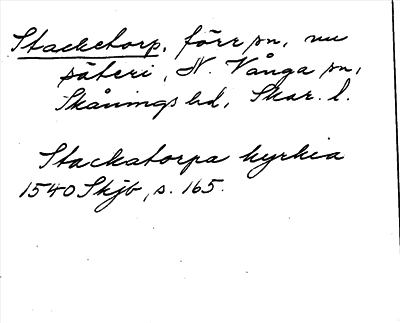 Stacketorp, förr sn, nu
säteri, N. Vånga sn,
Skånings hd, Skar. l.
Stackatorpa kyrkia
1540 Skjb, s. 165.